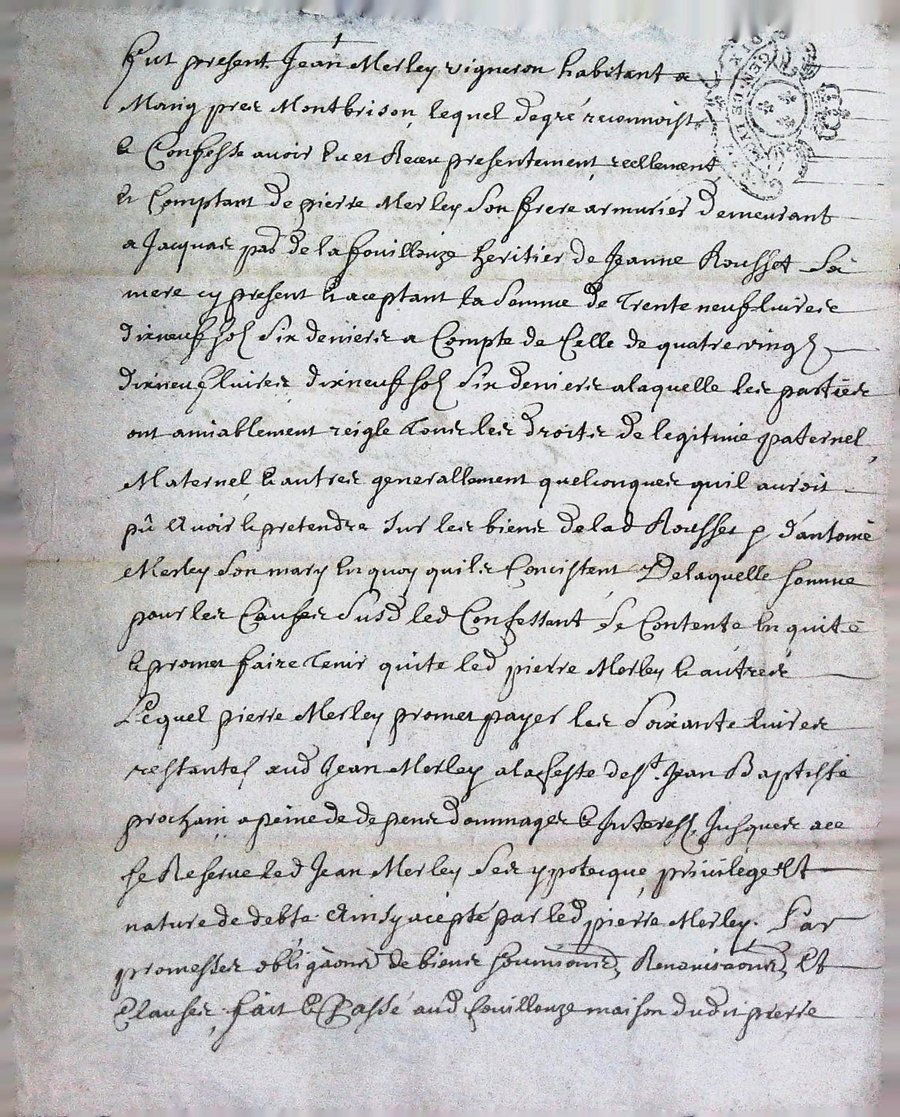 Fut present Jean Merley vigneron habitant a
Moing pres Montbrison, lequel degré reconnoist
et Confesse avoir eu et Receu presentement reellement
et Comptant de pierre Merley son frere armurier demeurant
a Jacquas pa͠r de la fouillouze heritier de Jeanne Rousset sa
mere cy present et aceptant la somme de Trente neuf livres
dixneuf sols six deniers a Compte de Celle de quatre vingts
dixneuf livres dixneuf sols six deniers a laquelle les parties
ont amiablement reigle Tous les droits de legitime paternel,
Maternel, et autres generallement quelconques quil auroit
pû avoir et pretendre sur les biens de lad Rousset & d'antoine
Merley son mary en quoy quils Concistent Delaquelle somme
pour les Causes susd led Confessant se Contente en quite
et promet faire Tenir quite led pierre Merley et autres
Lequel pierre Merley promet payer les soixante livres
restantes aud Jean Merley a la feste de St. Jean Baptiste
prochain a peine de depens dommages et Interests, Jusques a ce
se Reserve led Jean Merley ses ypoteque, privilege et
nature de debte Ainsy acepté par led pierre Merley. Par
promesses obligaons de biens soumissions, Renonciaons, et
Clauses, fait et Passé aud fouillouze maison dudit pierre
GEN. DE
DIX